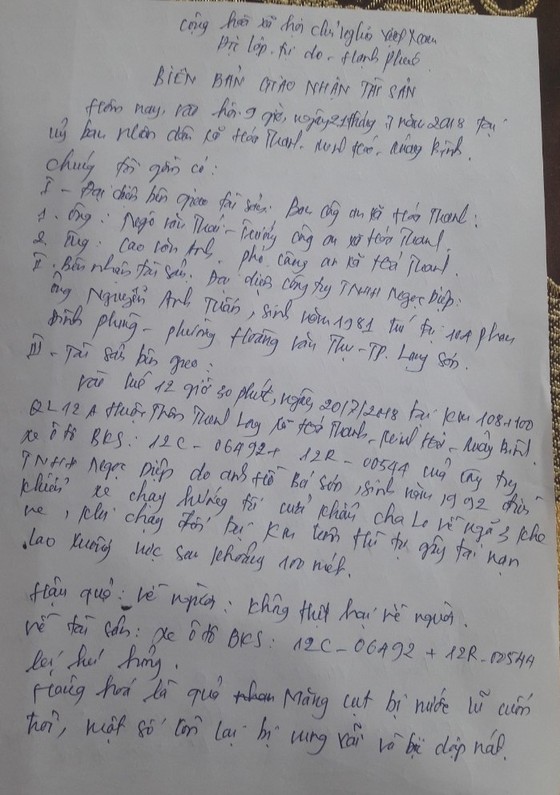 cộng hoà xã hội chủ nghĩa việt nam
Độc lập. tự do. Hạnh phúc.
BIÊN BẢN GIAO NHẬN TÀI SẢN
Hôm nay, vào hồi 9 giờ, ngày 21 tháng 7 năm 2018 tại
Uỷ ban nhân dân xã Hoá Thanh. Minh Hoá. Quảng Bình.
chúng tôi gồm có:
I - Đại diện bên giao tài sản: Ban công an xã Hoá Thanh:
1. Ông: Ngô văn Thái - Trưởng công an xã Hoá Thanh.
2. Ông: Cao văn Anh. phó công an xã Hoá Thanh.
II. Bên nhận tài sản: Đại diện công ty TNHH Ngọc Diệp:
ông Nguyễn Anh Tuấn, sinh năm 1981 trú tại 10A phan
Đình phùng - phường Hoàng văn Thụ - TP. Lạng Sơn.
III - Tài sản bàn giao:
vào lúc 12 giờ 30 phút, ngày 20/7/2018 tại Km 108+100
QL12A thuộc Thôn Thanh Long xã Hoá Thanh. Minh Hoá. Quảng Bình.
xe ô tô BKS: 12C - 06492 + 12R - 00544 của công ty
TNHH Ngọc Diệp do anh Hồ Bá Sơn, sinh năm 1992 điều
khiển xe chạy hướng từ cửa khẩu cha Lo về ngã 3 khe
ve, khi chạy đến tại Km trên thì tự gây tai nạn
lao xuống vực sâu khoảng 100 mét.
Hậu quả: về người: không thiệt hại về người.
về tài sản: xe ô tô BKS: 12C - 06492 + 12R - 00544
bị hư hỏng.
Hàng hoá là quả Măng cụt bị nước lũ cuốn
trôi, một số còn lại bị vung vãi và bị dập nát.